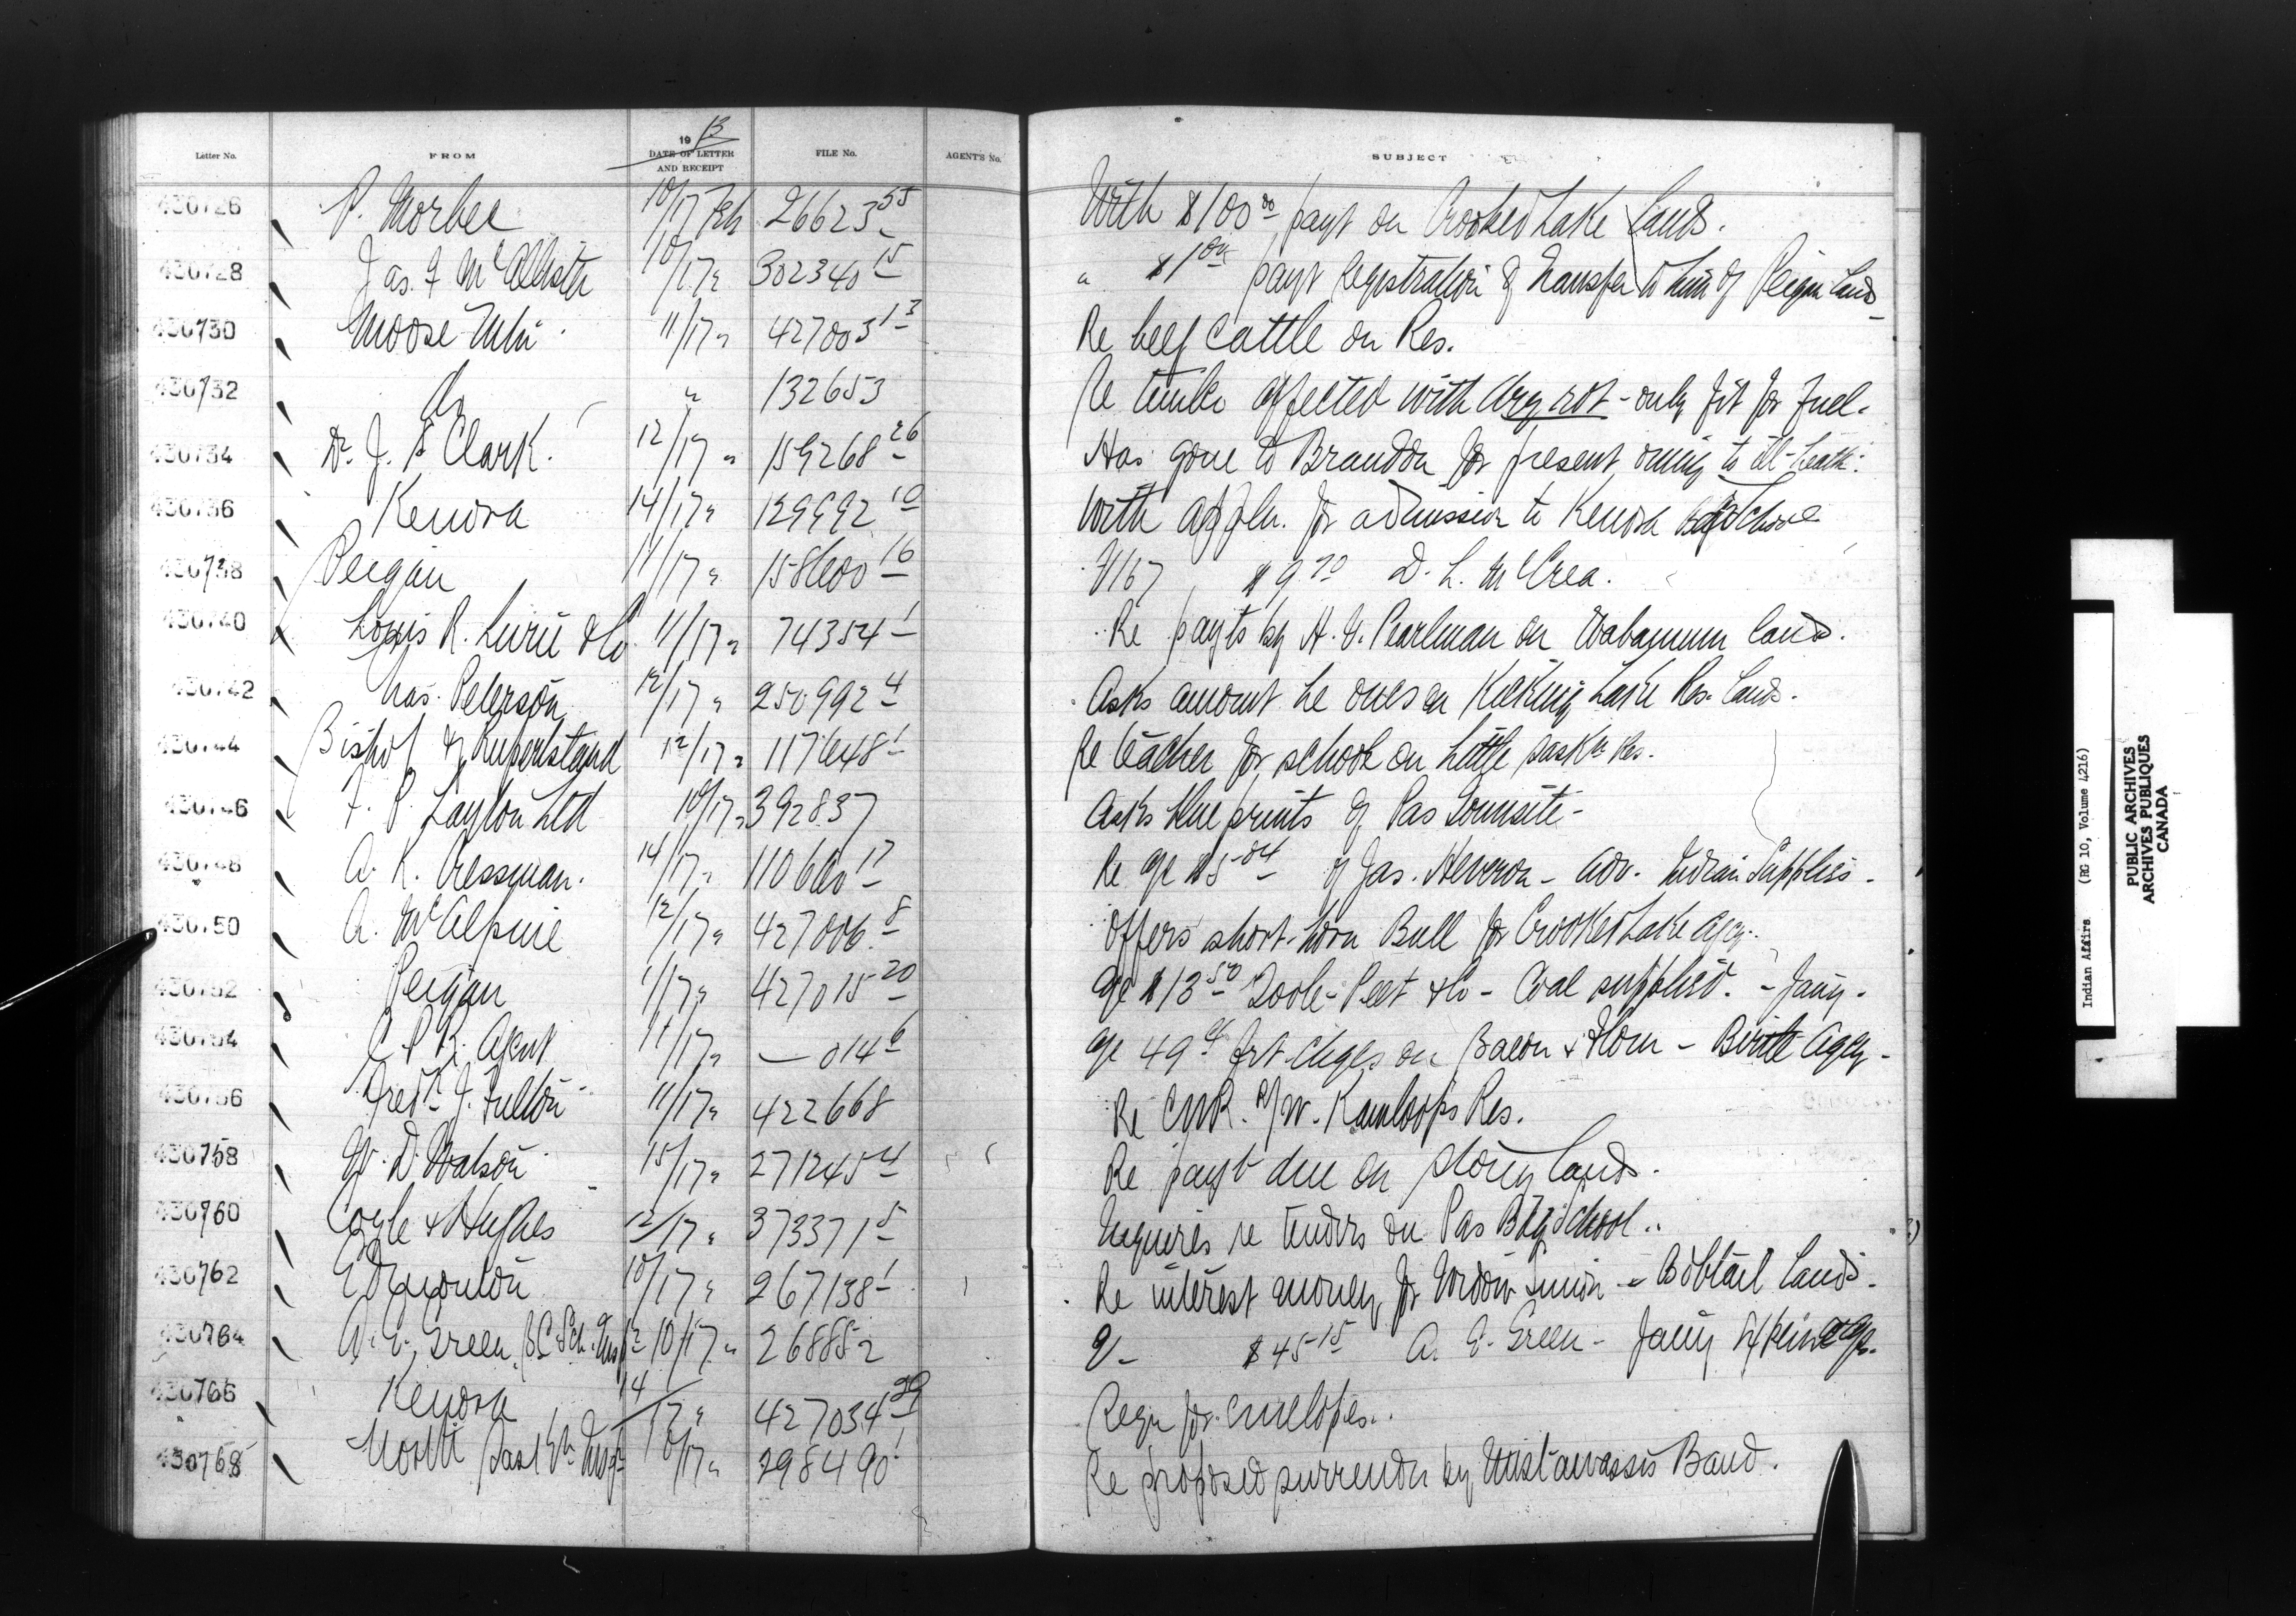 Letter No. FROM 1913 DATE OF LETTER AND RECEIPT FILE No. AGENT'S No. SUBJECT
430726 P. Morbee 10/17 Feb 26623 55 With $100 00 payt on Crooked Lake Lands.
430728 Jas. F McAllister 10/17 " 302340 15 " $1 00 payt registration of transfer to him of Peigan Lands
430730 Moose Mtn. 11/17 " 427003 13 Re beef cattle on Res.
430732 do " 132653 Re timber affected with dry rot - only fit for fuel.
430734 Dr. J. S Clark. 12/17 " 159268 26 Has gone to Brandon for present owing to ill-health.
430736 Kenora 14/17 " 129992 10 With appln. for admission to Kenora Bdg School
430738 Peigan 11/17 " 158600 16 V167 $9.70 D. L. McCrea.
430740 Louis R. Lurie & Co. 11/17 " 74354 1 Re payts by H. G. Pearlman on Wabamum land.
430742 Chas. Peterson 12/17 " 250992 4 Asks amount he owes on Keeking Lake Res. Lands.
430744 Bishop of Rupertsland 12/17 " 117648 1 Re teacher for school on Little Sask'n Res.
430746 F. P. Layton Ltd 10/17 " 392837 Asks blue prints of Pas Townsite -
430748 A. K. Cressman. 14/17 " 110660 17 Re a/c $5 04 of Jas. Heveron - adv. Indian Supplies -
430750 A. McAlpine 12/17 " 427006 8 Offers short-horn Bull for Crooked Lake Agcy.
430752 Peigan 11/17 " 427015 20 a/c $13 50 Toole-Peet & Co - Coal supplied. - Jany.
430754 C. P. R. Agent 11/17 " — 014 6 a/c 49 c frt chges on Bacon & Flour - Birtle Agcy -
430756 Fred. J. Fulton 11/17 " 422668 Re CNR. r/w. Kamloops Res.
430758 W. D. Watson 15/17 " 271245 4 Re payt due on Stony lands.
430760 Coyle & Hughes 12/17 " 373371 5 Inquires re tenders on Pas Bdg School..
430762 10/17 " 267138 1 Re interest money for - Bobtail Lands.
430764 A. E. Green, B.C. Sch. Insp 10/17 " 268852 V- $45 15 A. E. Green - Jany
430766 Kenora 14/17 " 427034 29 Reqn for envelopes..
430768 North Sask'n Insp 10/17 " 298490 1 Re proposed surrender by Mistawassis Band.
Indian Affairs (RG 10, Volume 4216)
PUBLIC ARCHIVES
ARCHIVES PUBLIQUES
CANADA